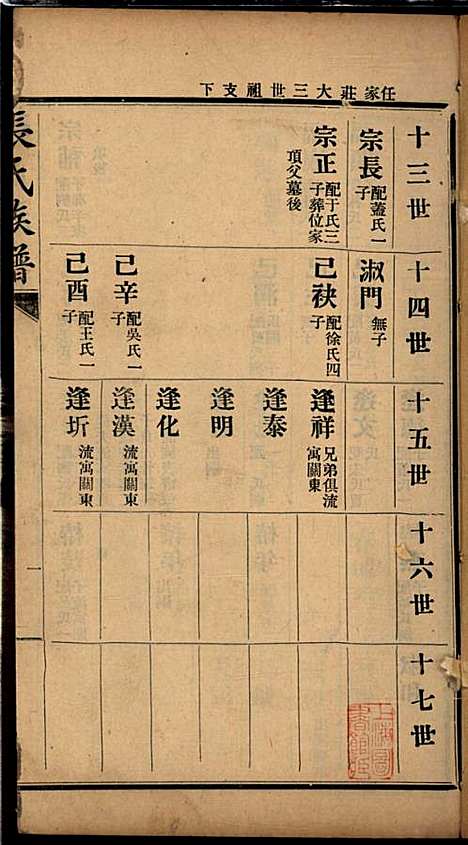 任家莊大三世祖支下
十三世
宗長 配蓋氏一子
宗正 配于氏三子葬位家頂父墓後
十四世
淑門 無子
己秧 配徐氏四子
己辛 配吳氏一子
己酉 配王氏一子
十五世
逢祥 兄弟俱流寓關東
逢泰
逢明
逢化
逢漢 流寓關東
逢圻 流寓關東
十六世
十七世
張氏族譜
一
上海圖書館藏